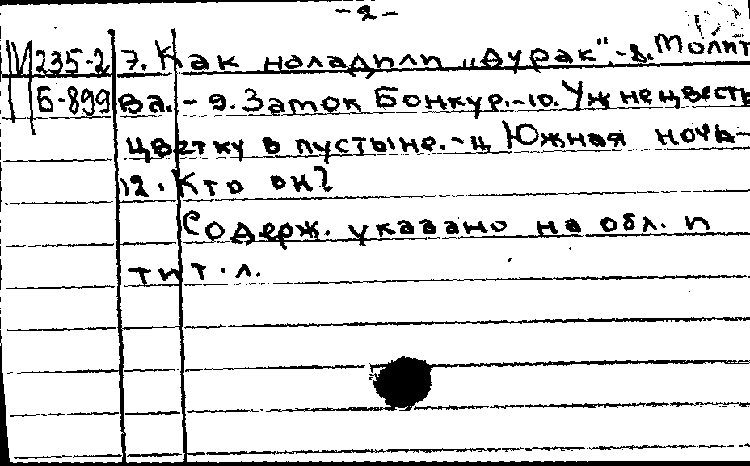 -2-
М 235-2 7. Как наладили „Дурак".-8. Молит
Б-899 ва.-9. Замок Бонкур.-10. Уж не цвесть
цветку в пустыне.-11. Южная ночь-
12. Кто он?
Содерж. указано на обл. и
тит. л.